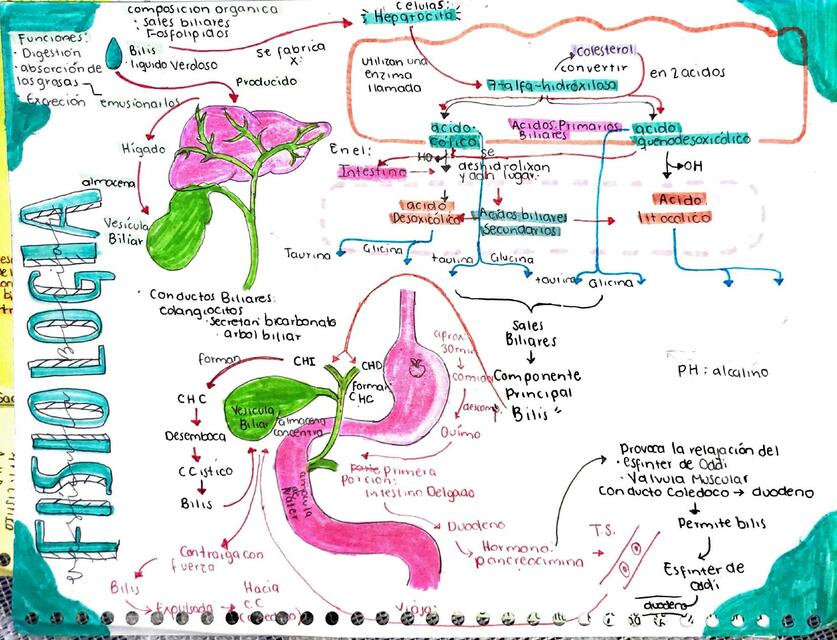 composicion organica
· sales biliares
· Fosfolipidos
Funciones:
· Digestión
· absorción de
las grasas
· Excreción
emusionarlos
Bilis
liquido verdoso
se fabrica
x:
Producido
Celulas:
Hepatocito
utilizan una
enzima
llamada
colesterol
convertir
en 2 acidos
7 alfa-hidroxilasa
acido
colico
Acidos Primarios
Biliares
acido
quenodesoxicólico
En el:
Intestino
HO
se
deshidrolixan
y dan lugar:
OH
acido
Desoxicólico
Acidos biliares
secundarios
Acido
litocolico
Taurina
Glicina
taurina
Glucina
taurina
Glicina
Sales
Biliares
Componente
Principal
Bilis
Hígado
almacena
Vesícula
Biliar
FISIOLOGIA
· Conductos Biliares:
colangiocitos
· secretan bicarbonato
· arbol biliar
forman
CHI
CHD
forman
CHC
CHC
Desemboca
CCistico
Bilis
Vesicula
Biliar
almacena
concentra
ampula
Vater
aprox:
30min
comida
Quimo
parte primera
porcion:
Intestino Delgado
Duodeno
Hormona:
pancreocimina
T.S.
PH: alcalino
Provoca la relajación del
· esfinter de Oddi
· Valvula Muscular
Conducto Coledoco → duodeno
Permite bilis
Esfinter de
oddi
duodeno
Contraiga con
fuerza
Bilis
Expulsada
Hacia
CC
Viaja